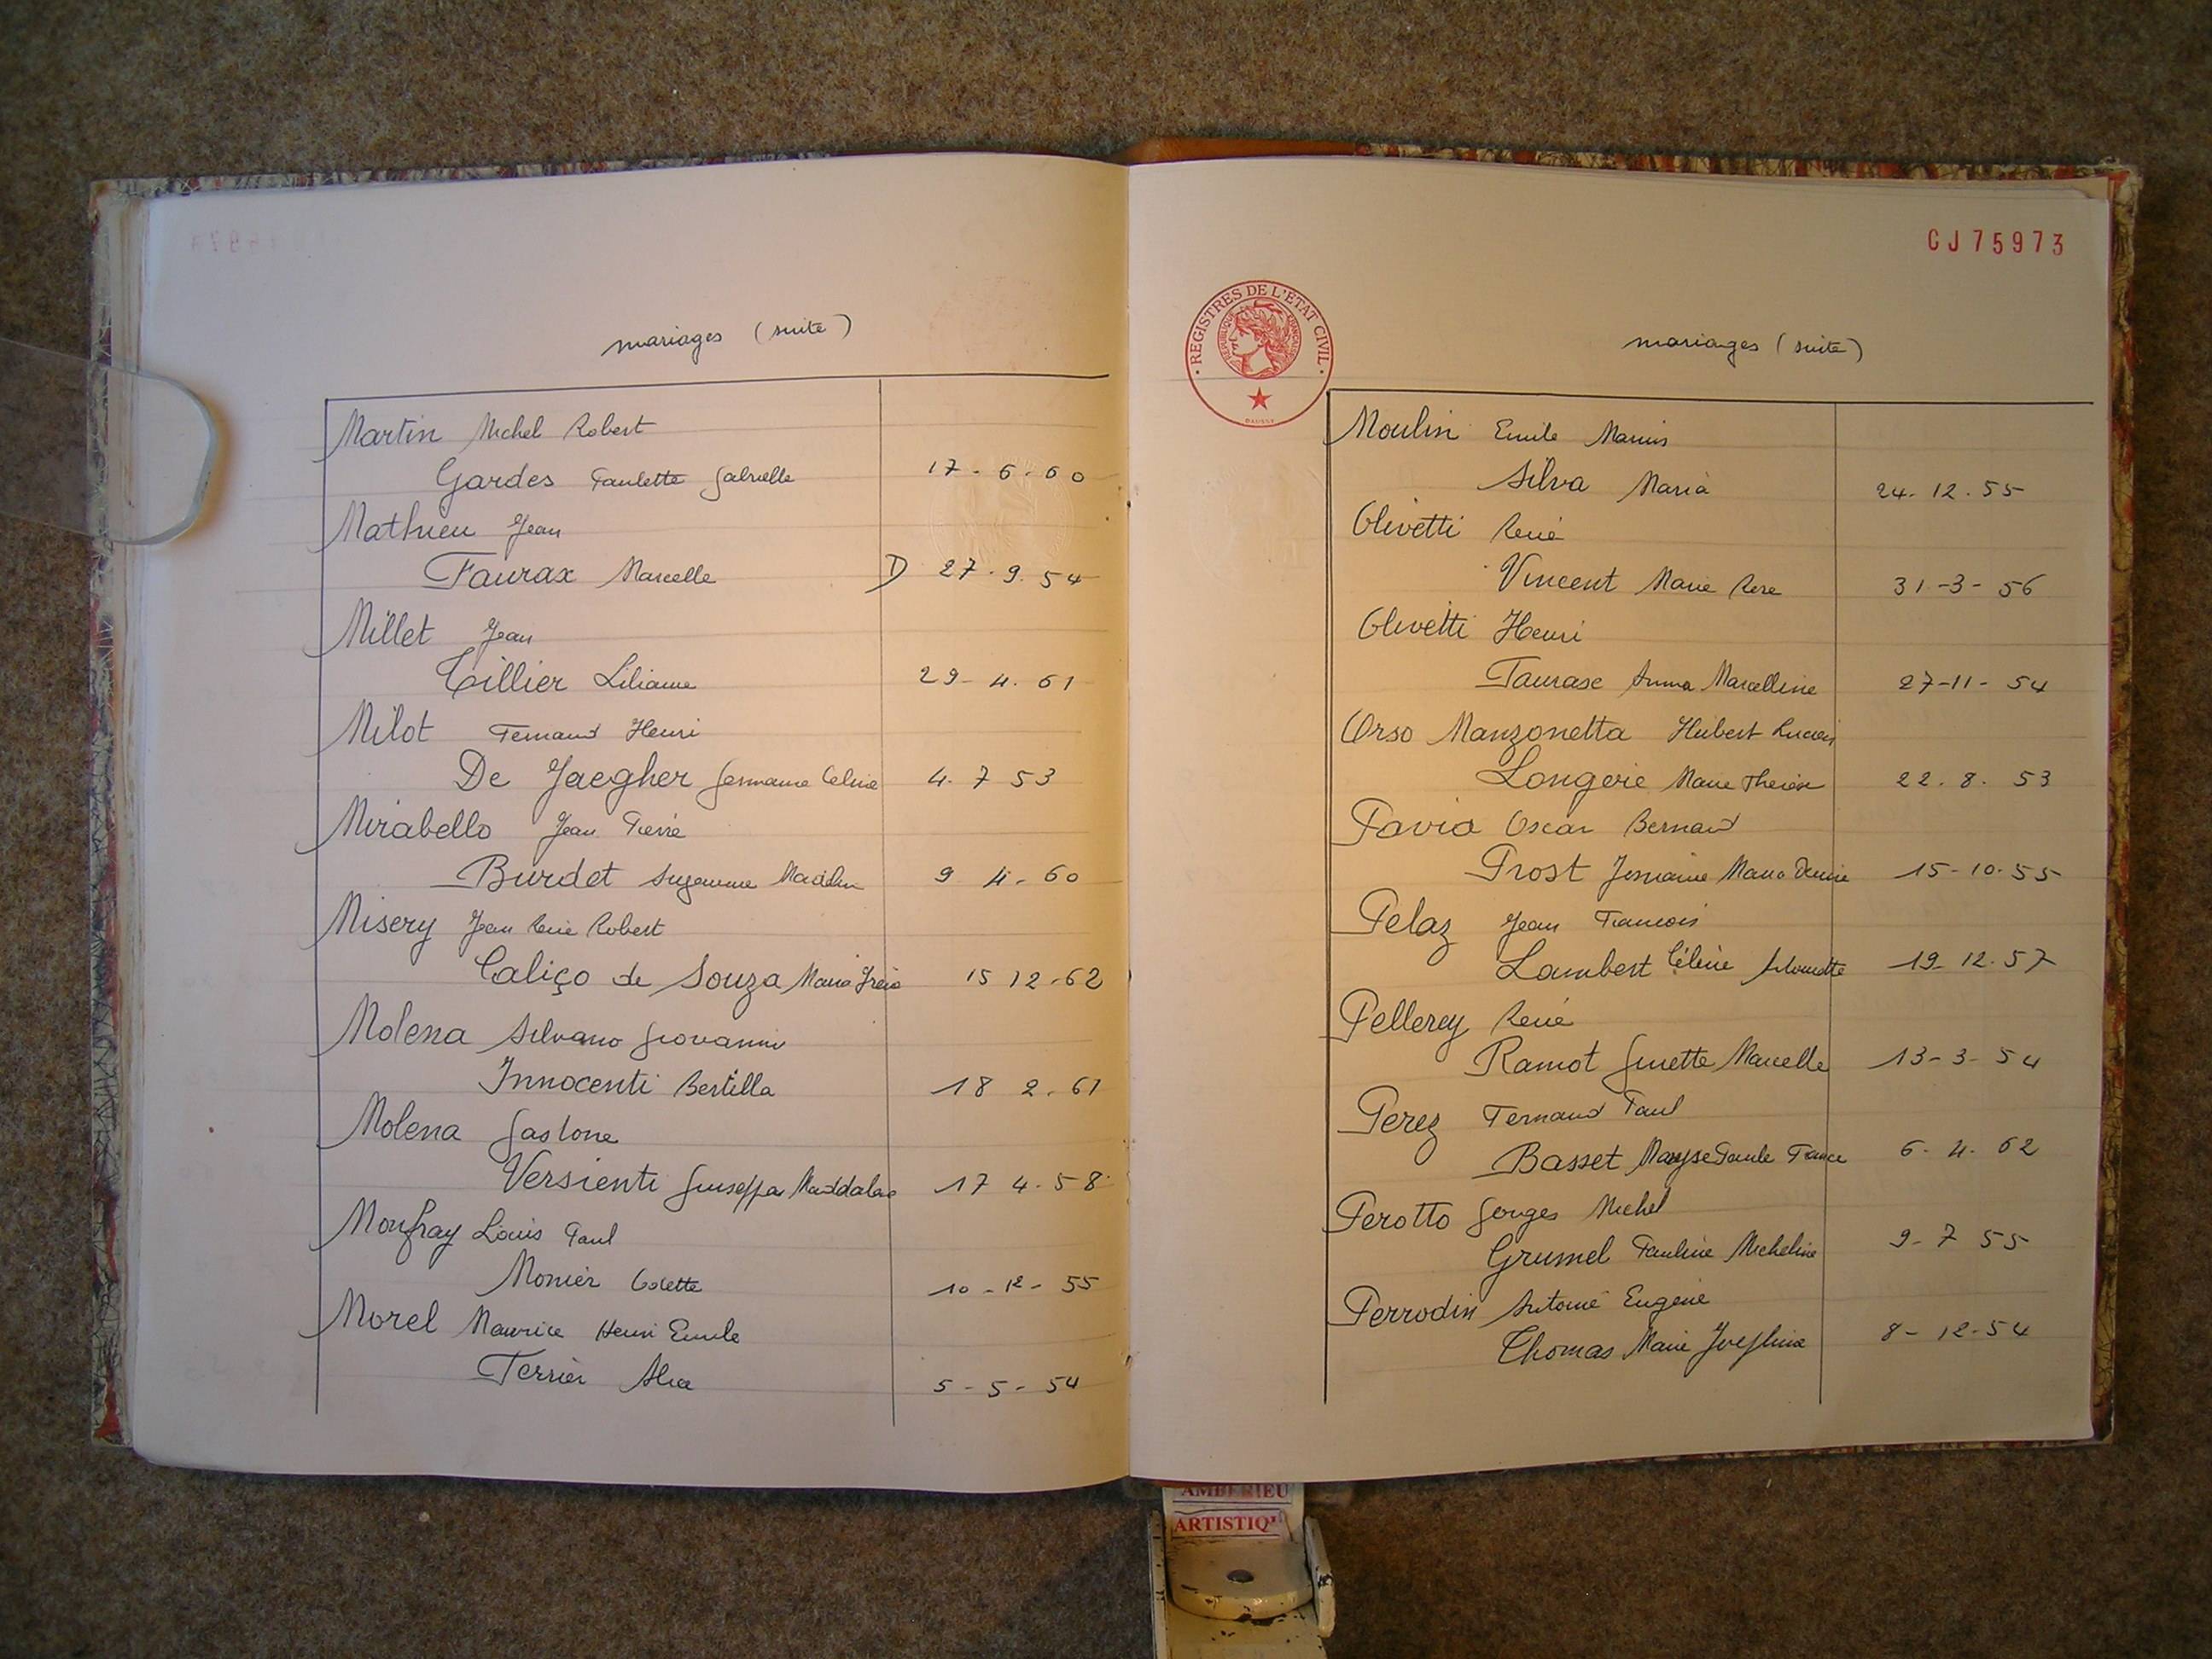 mariages (suite)
Martin Michel Robert
Gardes Paulette Gabrielle 17-6-60
Mathieu Jean
Faurax Marcelle D 27.9.54
Millet Jean
Tillier Liliane 29-4.61
Milot Fernand Henri
De Jaegher Germaine Celine 4.7 53
Mirabello Jean Pierre
Burdet Suzanne 9 4-60
Misery Jean René Robert
Caliço de Souza Maria 15 12-62
Molena Silvano Giovanni
Innocenti Bertilla 18 2.61
Molena Gastone
Versienti Giuseppa 17 4.58
Monfray Louis Paul
Monier Colette 10-12-55
Morel Maurice Henri Emile
Terrier Alice 5-5-54
CJ75973
REGISTRES DE L'ETAT CIVIL
REPUBLIQUE FRANÇAISE
mariages (suite)
Moulin Emile Marius
Silva Maria 24.12.55
Olivetti René
Vincent Marie Rose 31-3-56
Olivetti Henri
Anna Marcelline 27-11-54
Orso Manzonetta Hubert Lucien
Longerie Marie Thérèse 22.8.53
Pavia Oscar Bernard
Prost Germaine Marie Denise 15-10.55
Pelaz Jean François
Lambert Céline 19-12.57
Pellerey René
Ramot Ginette Marcelle 13-3-54
Perez Fernand Paul
Basset Maryse Paule France 6-4.62
Perotto Georges Michel
Grumel Pauline Micheline 9-7 55
Perrodin Antoine Eugène
Thomas Marie Josephine 8-12-54
AMBERIEU
ARTISTIQ